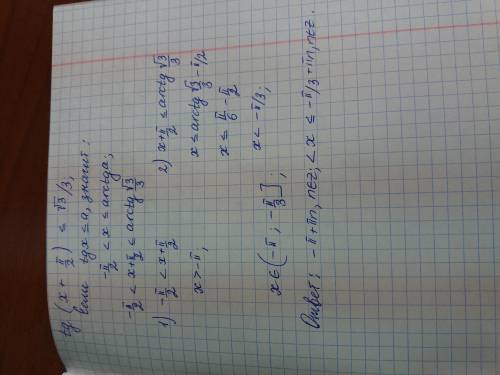 tg (x + π/2) ≤ √3/3,
если tgx ≤ a, значит:
-π/2 < x ≤ arctga;
-π/2 < x+π/2 ≤ arctg √3/3
1) -π/2 < x+π/2
x > -π,
2) x+π/2 ≤ arctg √3/3
x ≤ arctg √3/3 - π/2
x ≤ π/6 - π/2
x < -π/3;
x ∈ (-π ; -π/3];
Ответ: -π+πn, n∈z; < x ≤ -π/3+πn, n∈z.